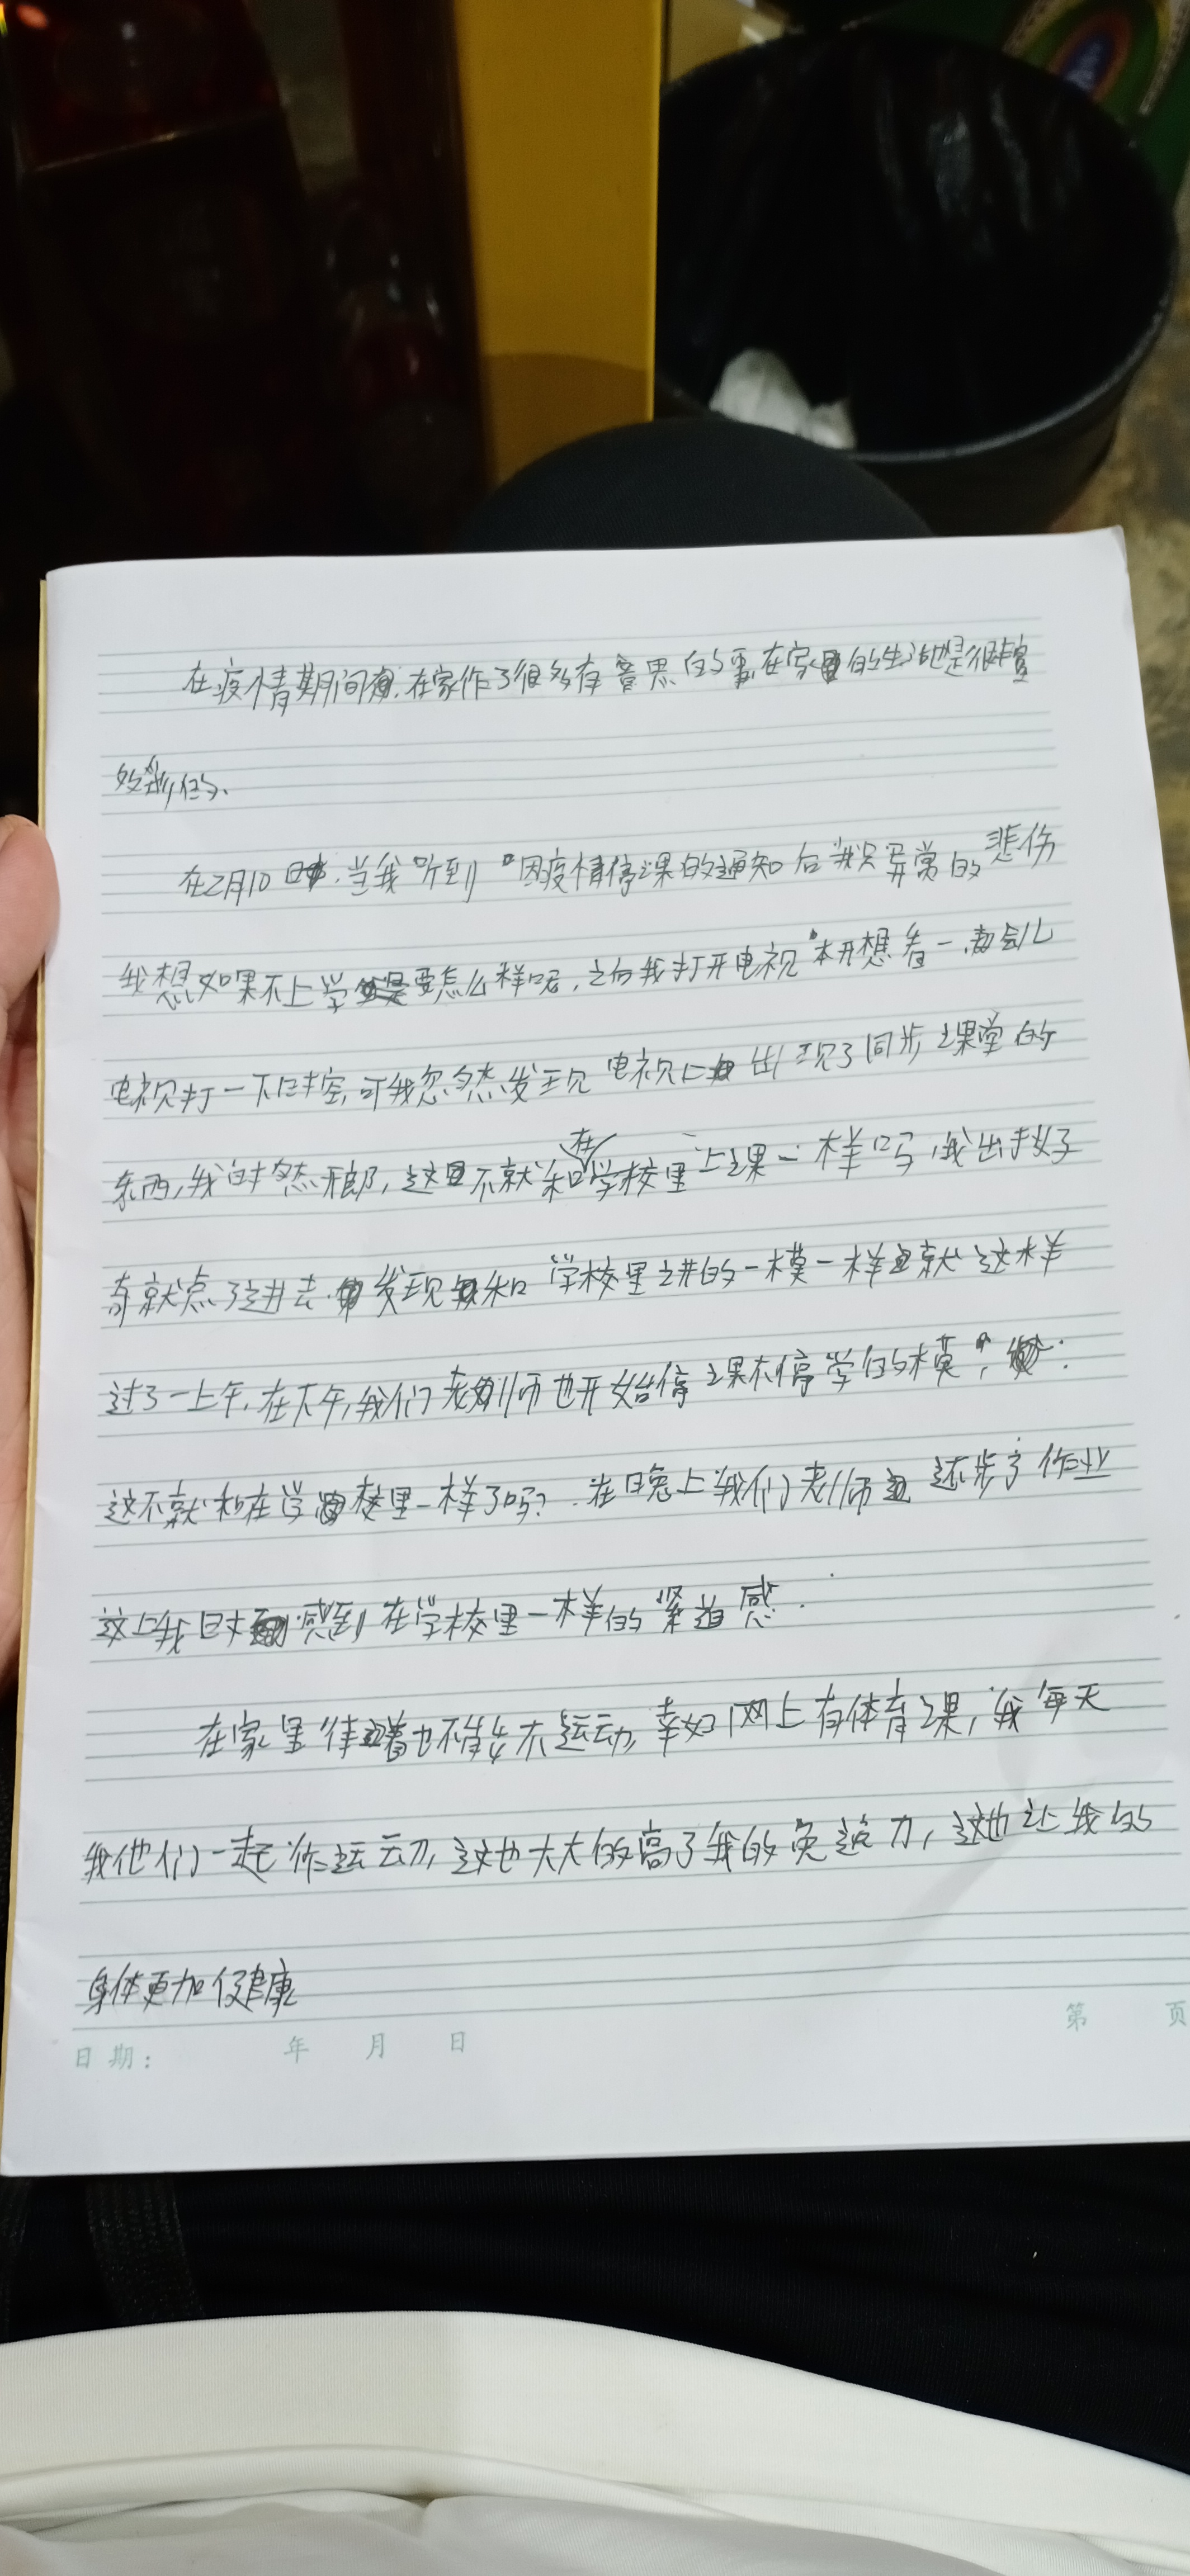 在疫情期间,在家作了很多有意思的事,在家的生活也是很丰富
多彩的、
在2月10日,当我听到"因疫情停课的通知后我只异常的悲伤
我想如果不上学要怎么样呢,之后我打开电视本想看一会儿
电视打一下时空,可我忽然发现电视上出现了同步课堂的
东西,我时然,这不就和在学校里上课一样吗,我出于好
奇就点了进去.发现和学校里讲的一模一样就这样
过了一上午,在下午,我们老师也开始停课不停学的模,
这不就和在学校里一样了吗?.在晚上我们老师还步了作业
这上我感到在学校里一样的紧迫感.
在家里待着也不能不运动,幸好网上有体育课,我每天
我他们一起作运动,这也大大的高了我的免疫力,这也让我的
身体更加健康
日期: 年 月 日
第 页